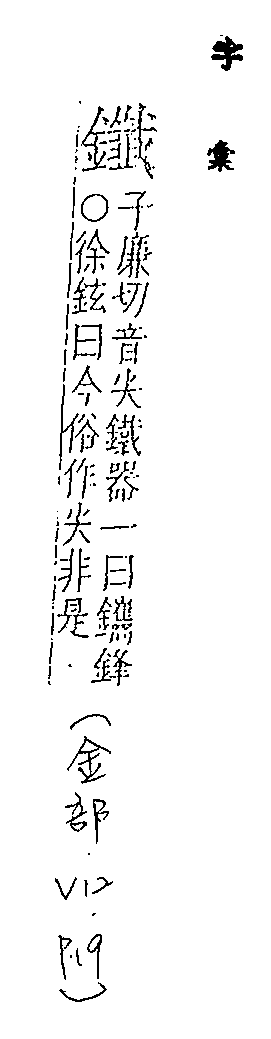 字彙
鑯子廉切音尖鐵器一曰鐫鋒
○徐鉉曰今俗作尖非是.
(金部.V12.P.19)